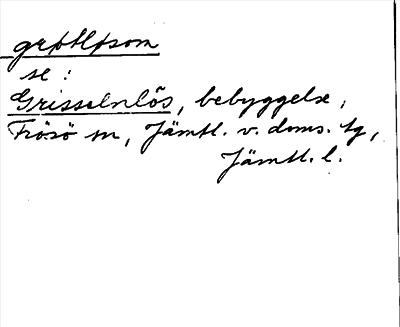 se:
Grisselnlös, bebyggelse,
Frösö sn, Jämtl. v. doms. tg,
Jämtl. l.